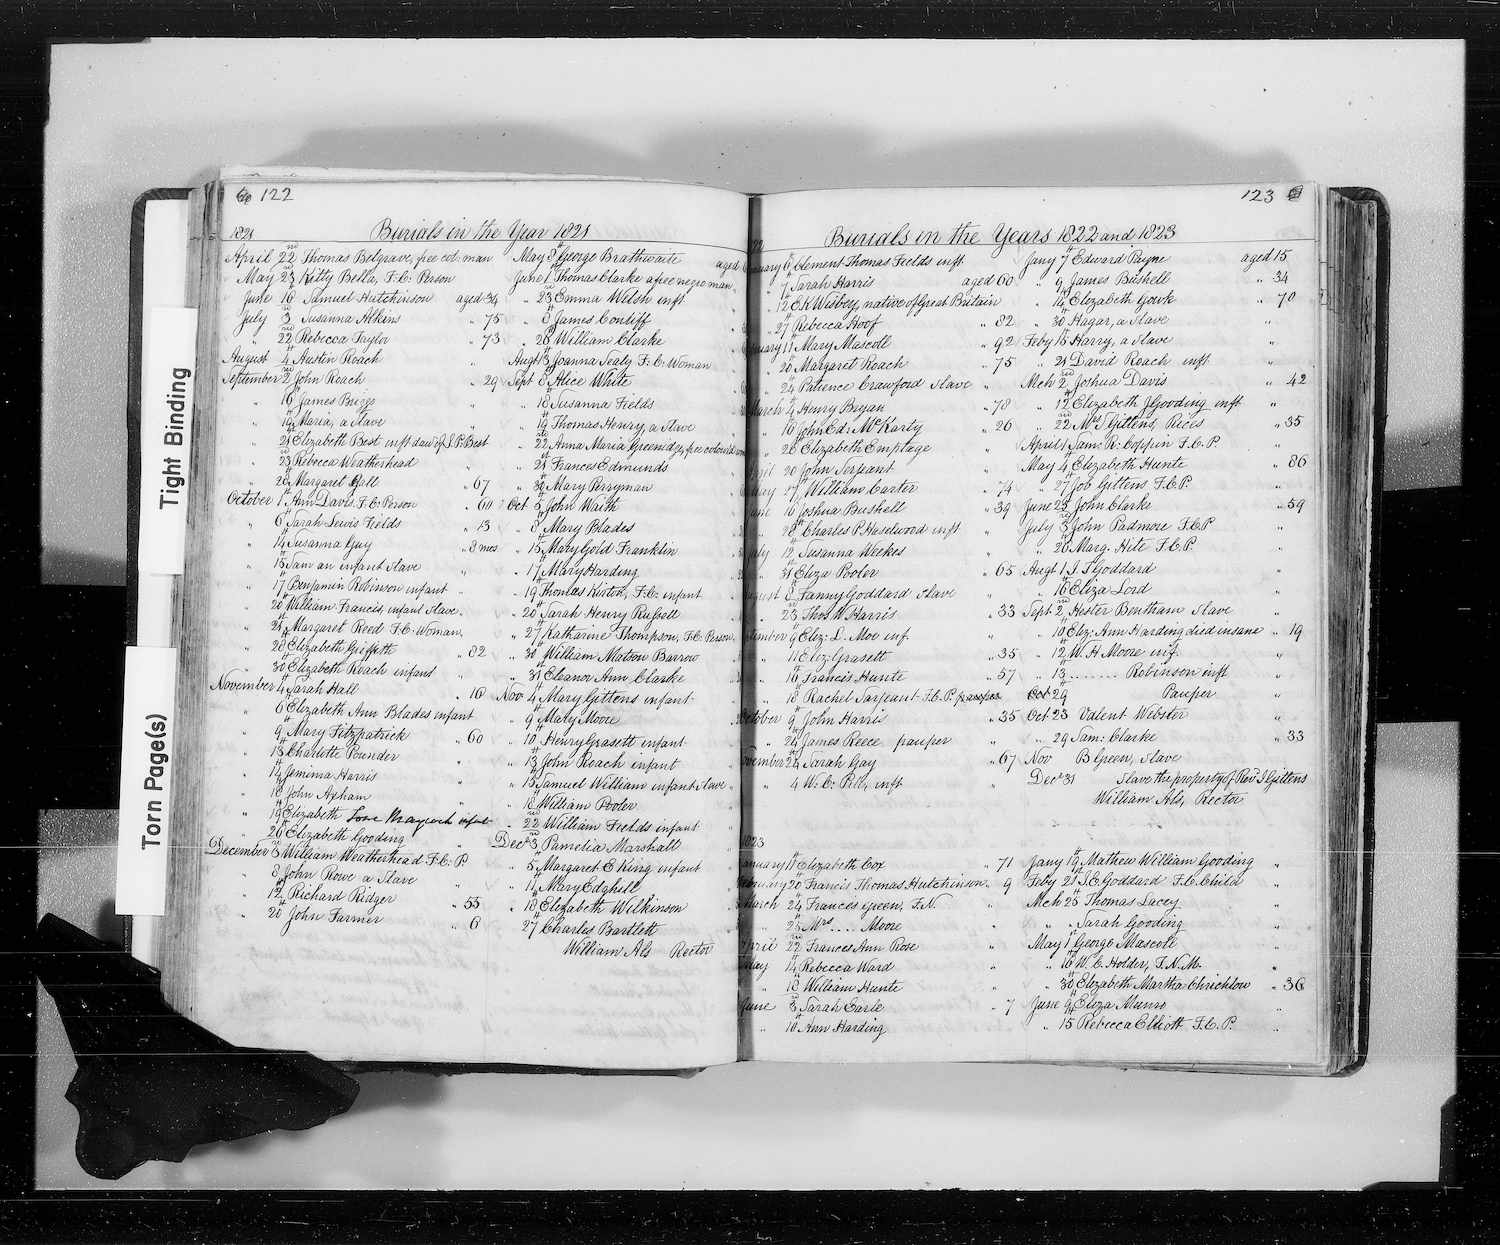 122
1821 Burials in the Year 1821
April 22nd Thomas Belgrave, free col: man
May 23rd Kitty Bella, F:C: Person
June 16th Samuel Hutchinson aged 34
July 3rd Susanna Atkins " 75
" 22nd Rebecca Taylor " 73
August 4th Austin Roach
September 2nd John Roach " 29
" 16th James Briggs "
" 19th Maria, a Slave "
" 21st Elizabeth Best inft daur of J.P. Best
" 23rd Rebecca Weatherhead "
" 26th Margaret Hall " 67
October 1st Ann Davis F:C: Person " 60
" 6th Sarah Lewis Fields " 13
" 14th Susanna Guy " 8 mos
" 15th Sam an infant Slave "
" 17th Benjamin Robinson infant "
" 20th William Francis, infant Slave "
" 21st Margaret Reed F:C: Woman "
" 28th Elizabeth Griffith " 82
" 30th Elizabeth Roach infant "
November 4th Sarah Hall " 16
" 6th Elizabeth Ann Blades infant
" 9th Mary Fitzpatrick " 60
" 13th Charlotte Pounder "
" 14th Jemima Harris "
" 18th John Axham "
" 19th Elizabeth infant
" 26th Elizabeth Gooding "
December 3rd William Weatherhead F:C: P
" 8th John Rowe a Slave "
" 12th Richard Ridger " 55
" 20th John Farmer " 6
May 9th George Brathwaite aged
June 1st Thomas Clarke a free negro man "
" 23rd Emma Welsh inft
" 8th James Conliff
" 28th William Clarke
Augt 13th Joanna Sealy F:C: Woman
Sept 8th Alice White
" 18th Susanna Fields
" 19th Thomas Henry, a Slave
" 22nd Anna Maria Greenidge, free coloured
" 24th Frances Edmunds
" 30th Mary Perryman
Oct 5th John Waith
" 8th Mary Blades
" 15th Mary Gold Franklin
" 17th Mary Harding
" 19th Thomas Kirton, F.C. infant
" 20th Sarah Henry Russell
" 27th Katharine Thompson, F.C. Person
" 30th William Matson Barrow
" 31st Eleanor Ann Clarke
Nov 4th Mary Gittens infant
" 9th Mary Moore
" 10th Henry Grasett infant
" 13th John Roach infant
" 15th Samuel William infant Slave
" 18th William Pooler
" 22nd William Fields infant
Decr 3rd Pamelia Marshall
" 5th Margaret E King infant
" 11th Mary Edghill
" 18th Elizabeth Wilkinson
" 27th Charles Bartlett
William Als Rector
123
22 Burials in the Years 1822 and 1823
uary 6th Clement Thomas Fields inft
" 7th Sarah Harris aged 60
" 12th E K Wisbey, native of Great Britain
" 27th Rebecca Hoof " 82
ruary 11th Mary Mascoll " 92
" 20th Margaret Roach " 75
" 24th Patience Crawford Slave "
March 4th Henry Bryan " 78
" 16th John Ed: McKarty " 26
" 26th Elizabeth Emptage "
pril 20 John Serjeant "
17th William Carter " 74
une 16th Joshua Bushell " 39
" 28th Charles P Haselwood inft "
uly 12th Susanna Weekes "
" 31st Eliza Pooler " 65
ugust 8th Fanny Goddard Slave "
" 23rd Thos W Harris " 33
tember 9th Eliz: L. Moe inf. "
" 11th Eliz: Grasett " 35
" 16th Francis Hunte " 57
" 18th Rachel Sarjeant F.C.P. pauper
October 9th John Harris " 35
" 24th James Reece pauper "
vember 24th Sarah Gay " 67
" 4 W.C: Pill, inft "
Jany 7th Edward Payne aged 15
" 9th James Bushell " 34
" 14th Elizabeth Gowk " 70
" 30th Hagar, a Slave "
Feby 15th Harry, a Slave "
" 21st David Roach inft "
Mch 2nd Joshua Davis " 42
" 12th Elizabeth J Gooding inft "
" 22nd Mr J Gittens, Rices " 35
April 1st Sam: R: Coppin F.C.P. "
May 4th Elizabeth Hunte " 86
" 27th Job Gittens F.C.P. "
June 25th John Clarke " 59
July 3rd John Padmore F.C.P "
" 26th Marg: Hite F.C.P. "
Augt 1st J T Goddard "
" 16th Eliza Lord "
Sept 2nd Hester Bentham Slave "
" 10th Eliz: Ann Harding died insane " 19
" 12th W.H Moore inf. "
" 13 ........ Robinson inft "
Oct 29 Pauper "
Oct 23 Valent Webster "
" 29 Sam: Clarke " 33
Nov B Green, Slave
Decr 31 Slave the property of Revd J Gittens
William Als, Rector
1823
anuary 11th Elizabeth Cox " 71
ebruary 20th Francis Thomas Hutchinson " 9
March 24th Frances Green, F.N. "
" 25th Mrs ..... Moore
April 22nd Frances Ann Rose "
May 14th Rebecca Ward "
" 18th William Hunte "
June 3rd Sarah Earle " 7
" 10th Ann Harding
Jany 19th Mathew William Gooding "
Feby 21st J.E. Goddard F.C. Child "
Mch 25th Thomas Lacey "
" " Sarah Gooding
May 1st George Mascoll "
" 16th W.C. Holder, F.N.M. "
" 30th Elizabeth Martha Chrichlow " 36
June 9th Eliza Munro "
" 15th Rebecca Elliott F.C.P. "
Tight Binding
Torn Page(s)